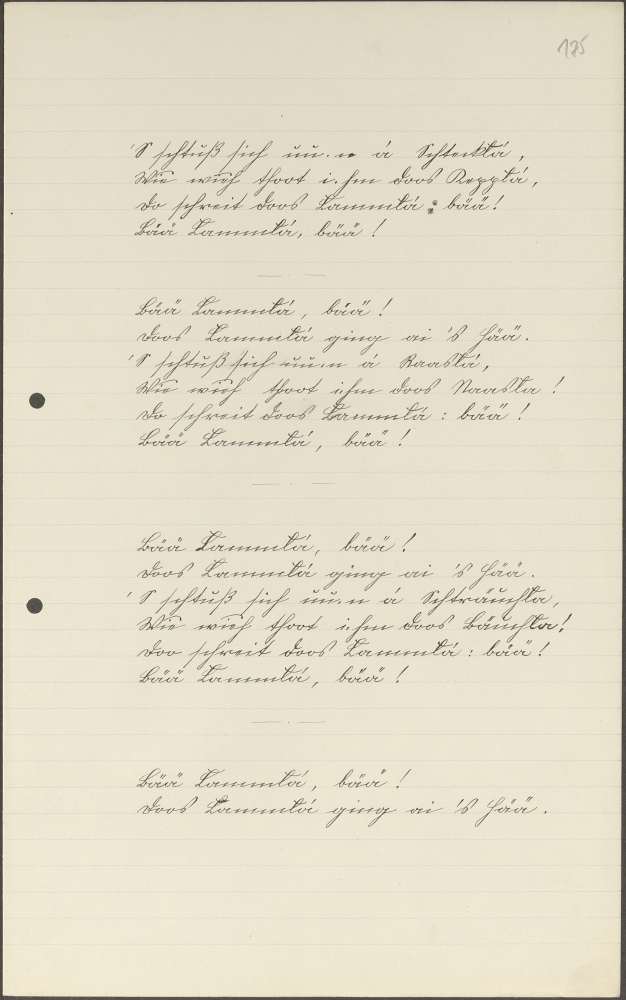 175
'S schtuß sich uu.n á Schtecklá,
Wie wieh thoot i.hm doos Kepplá,
Do schreit doos Lammlá: bää!
Bää Lammlá, bää!
Bää Lammlá, bää!
Doos Lammlá ging ai 's Hää.
'S schtuß sich uu.n á Raaslá,
Wie wieh thoot ihm doos Naasla!
Do schreit doos Lammlá: bää!
Bää Lammlá, bää!
Bää Lammlá, bää!
Doos Lammlá ging ai 's Hää.
'S schtuß sich uu.n á Schträuchla,
Wie wieh thoot ihm doos Bäuchla!
Doo schreit doos Lammlá: bää!
Bää Lammlá, bää!
Bää Lammlá, bää!
Doos Lammlá ging ai 's Hää.